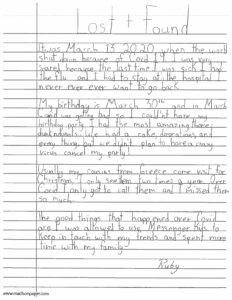 Lost + Found
It was March 13 2020, when the world
shut down because of Covid 19. I was very
scared because the last time I was sick I had
the flu and I had to stay at the hospital I
never ever ever want to go back.
My birthday is March 30th and in March
Covid was going bad so I couldn't have my
birthday party. I had the most amazing home
We had a cake, decorations, and
every thing, but we didn't plan to have a crazy
virus cancel my party!
Usually my cousins from Greece come visit for
Christmas. I only see them two times a year. Over
Covid I only got to call them and I missed them
so much.
The good things that happened over Covid
are I was allowed to use Messenger Kids to
keep in touch with my friends and spent more
time with my family.
Ruby